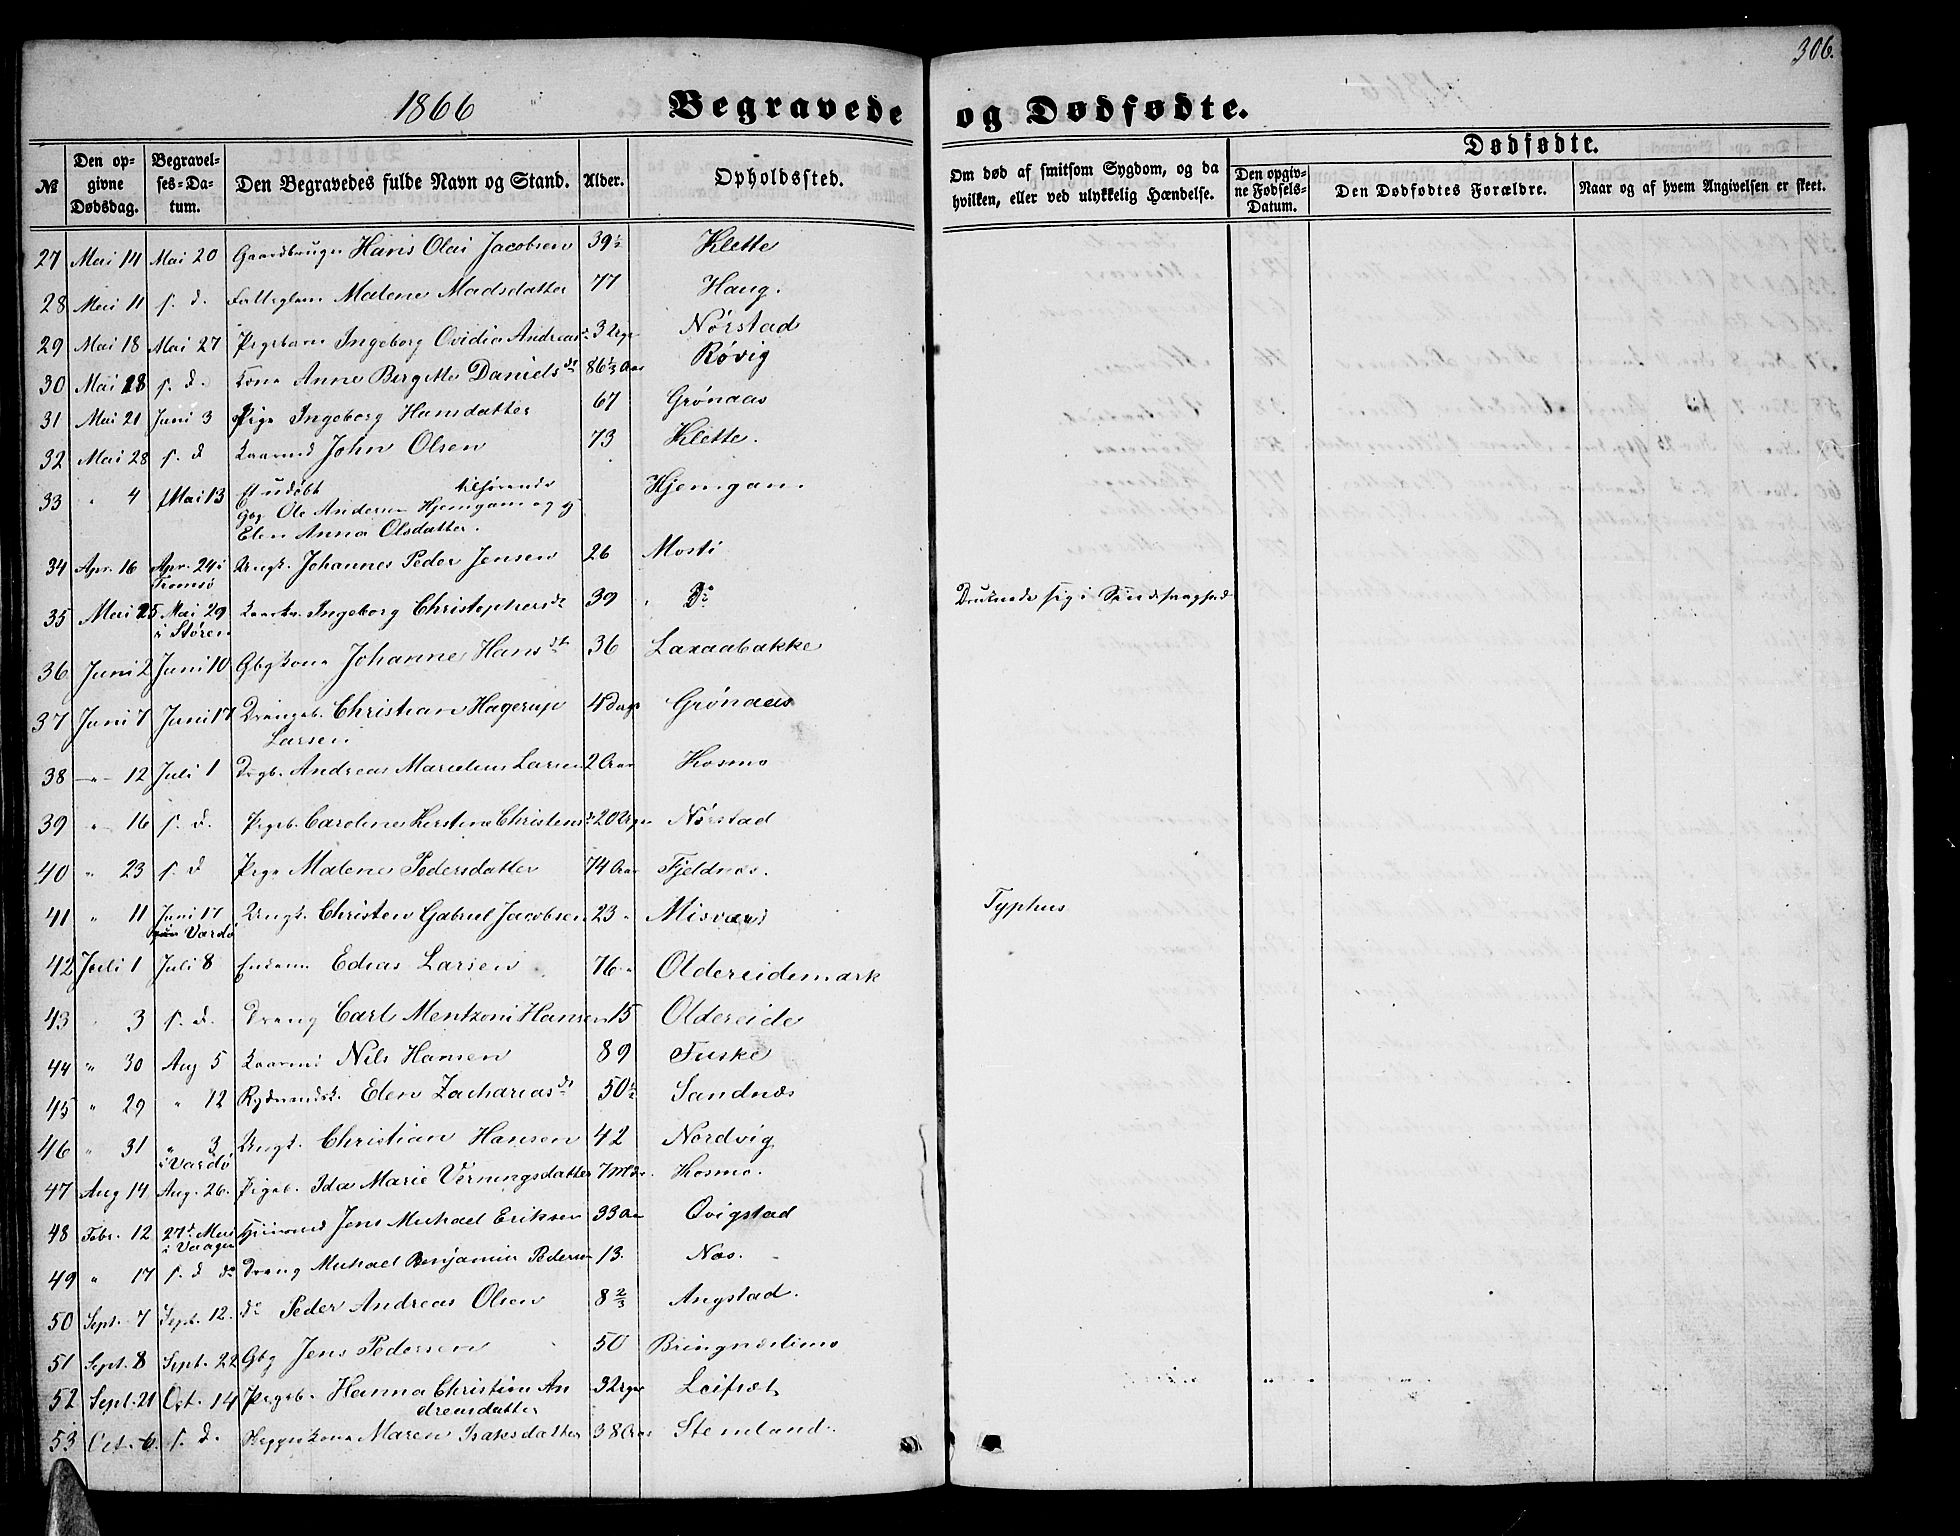 306.
1866 Begravede og Dødfødte.
№ Den opgivne Dødsdag. Begravelses-Datum. Den Begravedes fulde Navn og Stand. Alder. Opholdssted. Om død af smitsom Sygdom, og da hvilken, eller ved ulykkelig Hændelse. Dødfødte. Den opgivne Fødsels-Datum. Den Dødfødtes Forældre. Naar og af hvem Angivelsen er skeet.
27 Mai 14 Mai 20 Hans Olai Jacobsen 39½ Klette
28 Mai 11 s. d. Malene Madsdatter 77 Haug.
29 Mai 18 Mai 27 Pigebarn Ingeborg Ovidia Andreasd 3 Uger Nørstad
30 Mai 18 s. d. Kone Anne Bergitte Danielsdr 86½ Aar Røvig
31 Mai 21 Juni 3 Pige Ingeborg Hansdatter 67 Grønaas
32 Mai 28 s. d Kaarmd John Olsen 73 Klette.
33 " 4 Mai 13 et udøbt tilhørende Hjemgam.
Gbg Ole Andersen Hjemgam og
Elen Anna Olsdatter.
34 Apr. 16 Apr. 24 i Ungk. Johannes Peder Jensen 26 Mosti
Tromsø
35 Mai 25 Mai 29 Ingeborg Christophersdr 39 " Do Druknede sig i
i Støren
36 Juni 2 Juni 10 Gbgkone Johanne Hansdtr 36 Laxaabakke
37 Juni 7 Juni 17 Drengeb. Christian Hagerup 4 Dage Grønaas
Larsen
38 -"- 12 Juli 1 Drgb. Andreas Marelius Larsen 2 Aar Kosmo
39 " 16 s. d. Pigeb. Caroline Kirstine Christensd 20 Uger Nørstad
40 " 23 s. d Pige Malene Pedersdatter 74 Aar Fjeldnæs.
41 " 11 Juni 17 Ungk. Christen Gabriel Jacobsen 23 " Misvær Typhus
Vardø
42 Juli 1 Juli 8 Enkem Edias Larsen 76 " Oldereidemark
43 " 3 s. d. Dreng Carl Mentzoni Hansen 15 Oldereide
44 " 30 Aug 5 Kaarmd Nils Hansen 89 Fuske
45 " 29 " 12 Elen Zachariasdr 50½ Sandnæs
46 " 31 " 3 Ungk. Christian Hansen 42 Nordvig
i Vardø
47 Aug 14 Aug. 26. Pigeb. Ida Marie Verningsdatter 7 Mdr. Kosmo.
48 Febr. 12 27d Mai Jens Michael Eriksen 33 Aar Qvigstad
i Vaagen
49 " 17 s. d do Dreng Michael Benjamin Pedersen 13. Næs.
50 Sept. 7 Sept. 12. do Peder Andreas Olsen 8⅔ Angstad.
51 Sept. 8 Sept. 22 Gbg Jens Pedersen 50 Bringnæslimo
52 Sept. 21 Oct. 14 Pigeb. Hanna Christine An 3 Uger Leifset
dreasdatter
53 Oct. 6. s. d. Maren Isaksdatter 38 Aar Stemland.